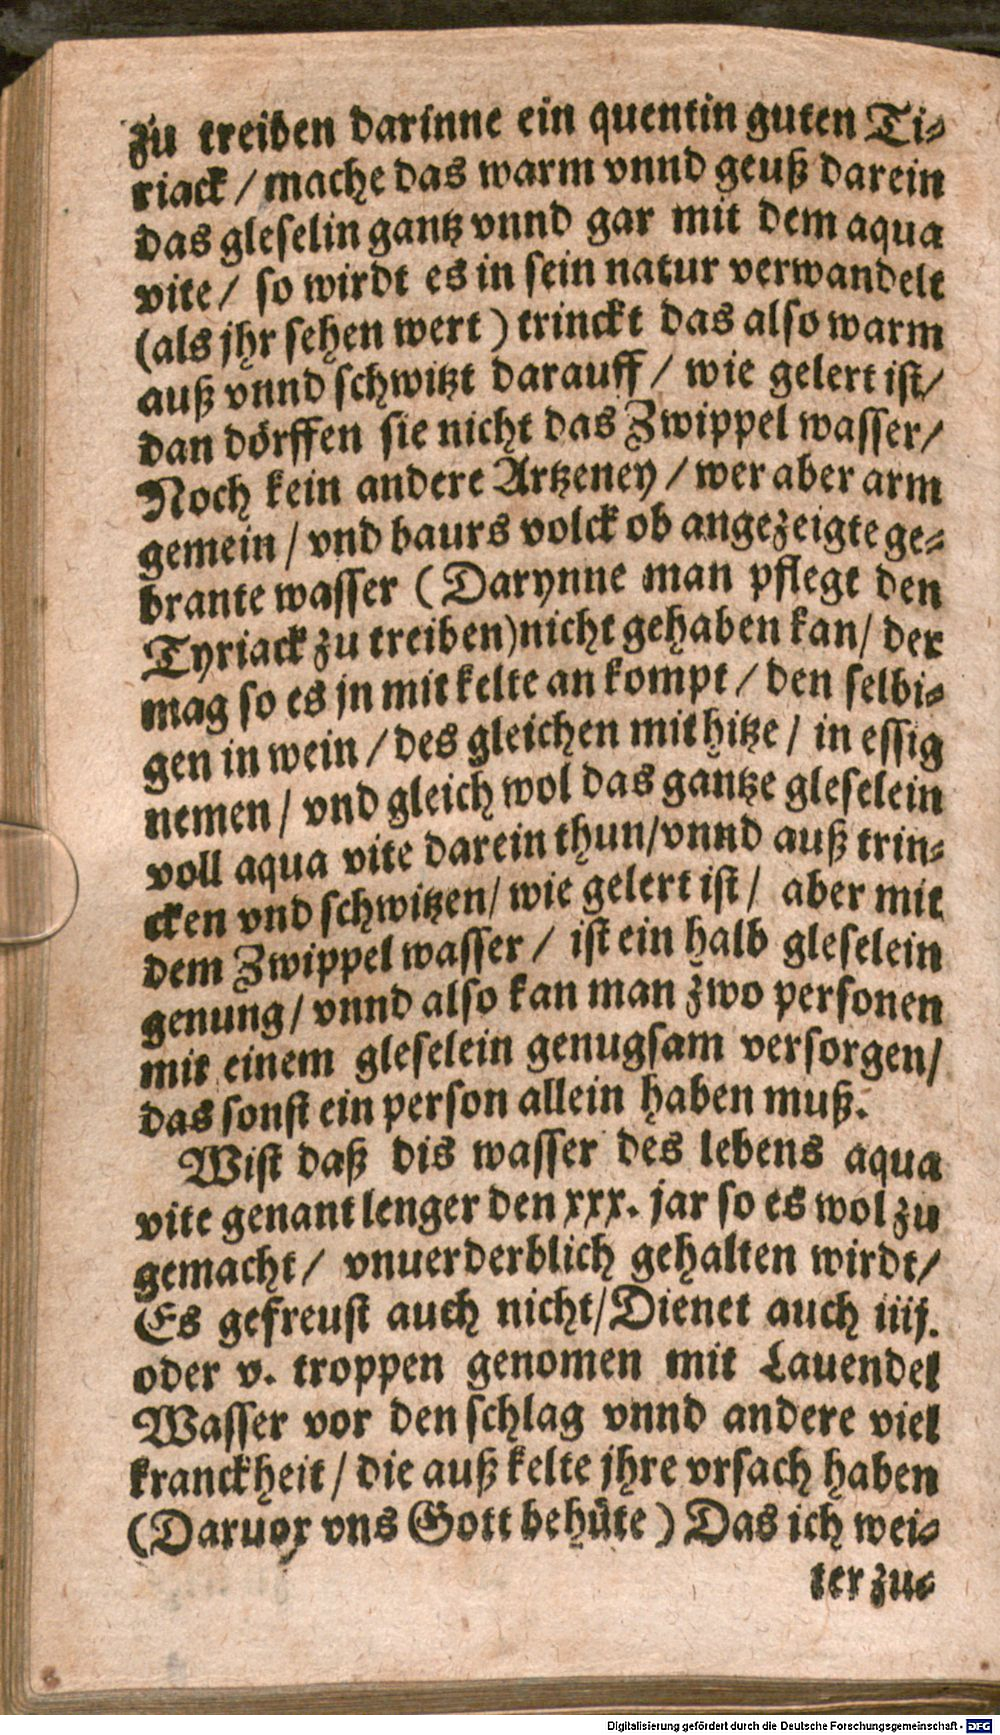 zu treiben darinne ein quentin guten Ti-
riack / mache das warm vnnd geuß darein
das gleselin gantz vnnd gar mit dem aqua
vite / so wirdt es in sein natur verwandelt
(als jhr sehen wert ) trinckt das also warm
auß vnnd schwitzt darauff / wie gelert ist/
dan dörffen sie nicht das Zwippel wasser/
Noch kein andere Artzeney / wer aber arm
gemein / vnd baurs volck ob angezeigte ge-
brante wasser ( Darynne man pflegt den
Tyriack zu treiben)nicht gehaben kan/ der
mag so es jn mit kelte an kompt / den selbi-
gen in wein / des gleichen mit hitze / in essig
nemen / vnd gleich wol das gantze gleselein
voll aqua vite darein thun/vnnd auß trin-
cken vnd schwitzen/ wie gelert ist / aber mit
dem Zwippel wasser / ist ein halb gleselein
genung/ vnnd also kan man zwo personen
mit einem gleselein genugsam versorgen/
das sonst ein person allein haben muß.
Wist daß dis wasser des lebens aqua
vite genant lenger den xxx. jar so es wol zu
gemacht / vnuerderblich gehalten wirdt/
Es gefreust auch nicht/Dienet auch iiij.
oder v. troppen genomen mit Lauendel
Wasser vor den schlag vnnd andere viel
kranckheit / die auß kelte jhre vrsach haben
(Daruor vns Gott behüte ) Das ich wei-
ter zu-
Digitalisierung gefördert durch die Deutsche Forschungsgemeinschaft - DFG